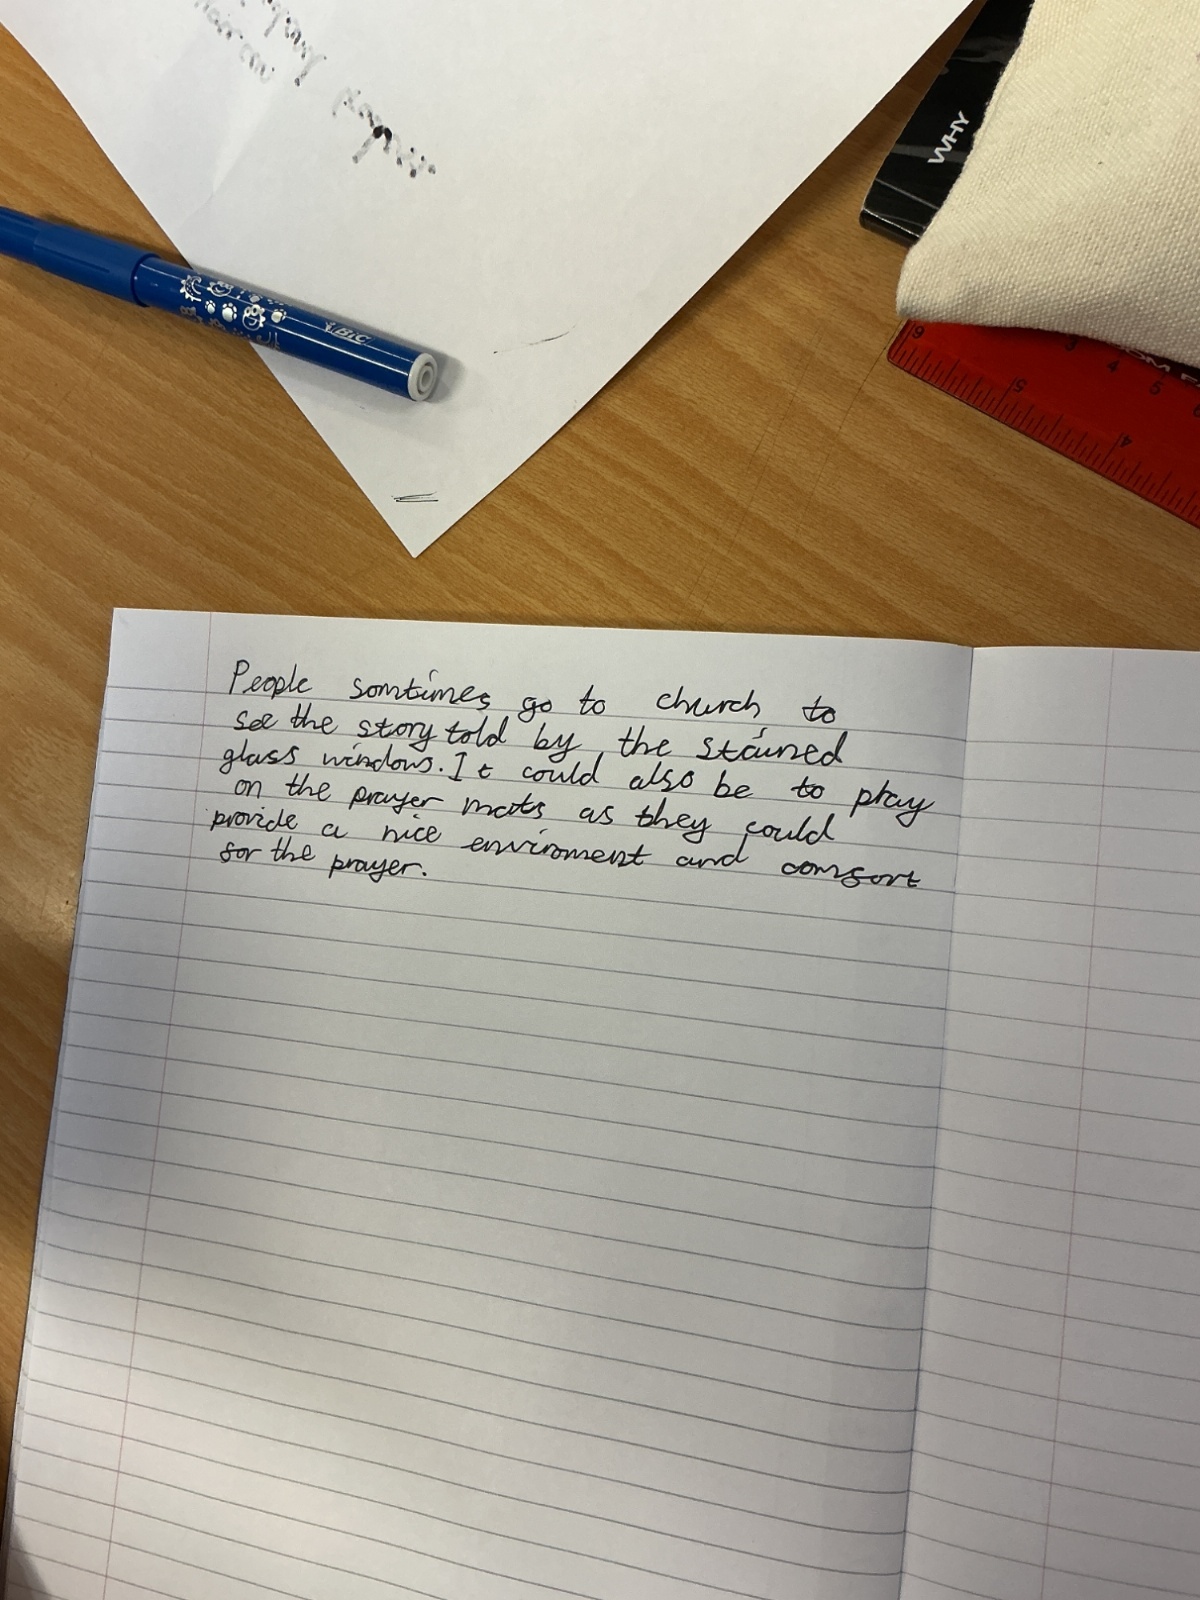 WHY
BIC
6
5
4
3
4
5
People somtimes go to church to
see the story told by the stained
glass windows. It could also be to play
on the prayer mats as they could
provide a nice enviroment and comfort
for the prayer.